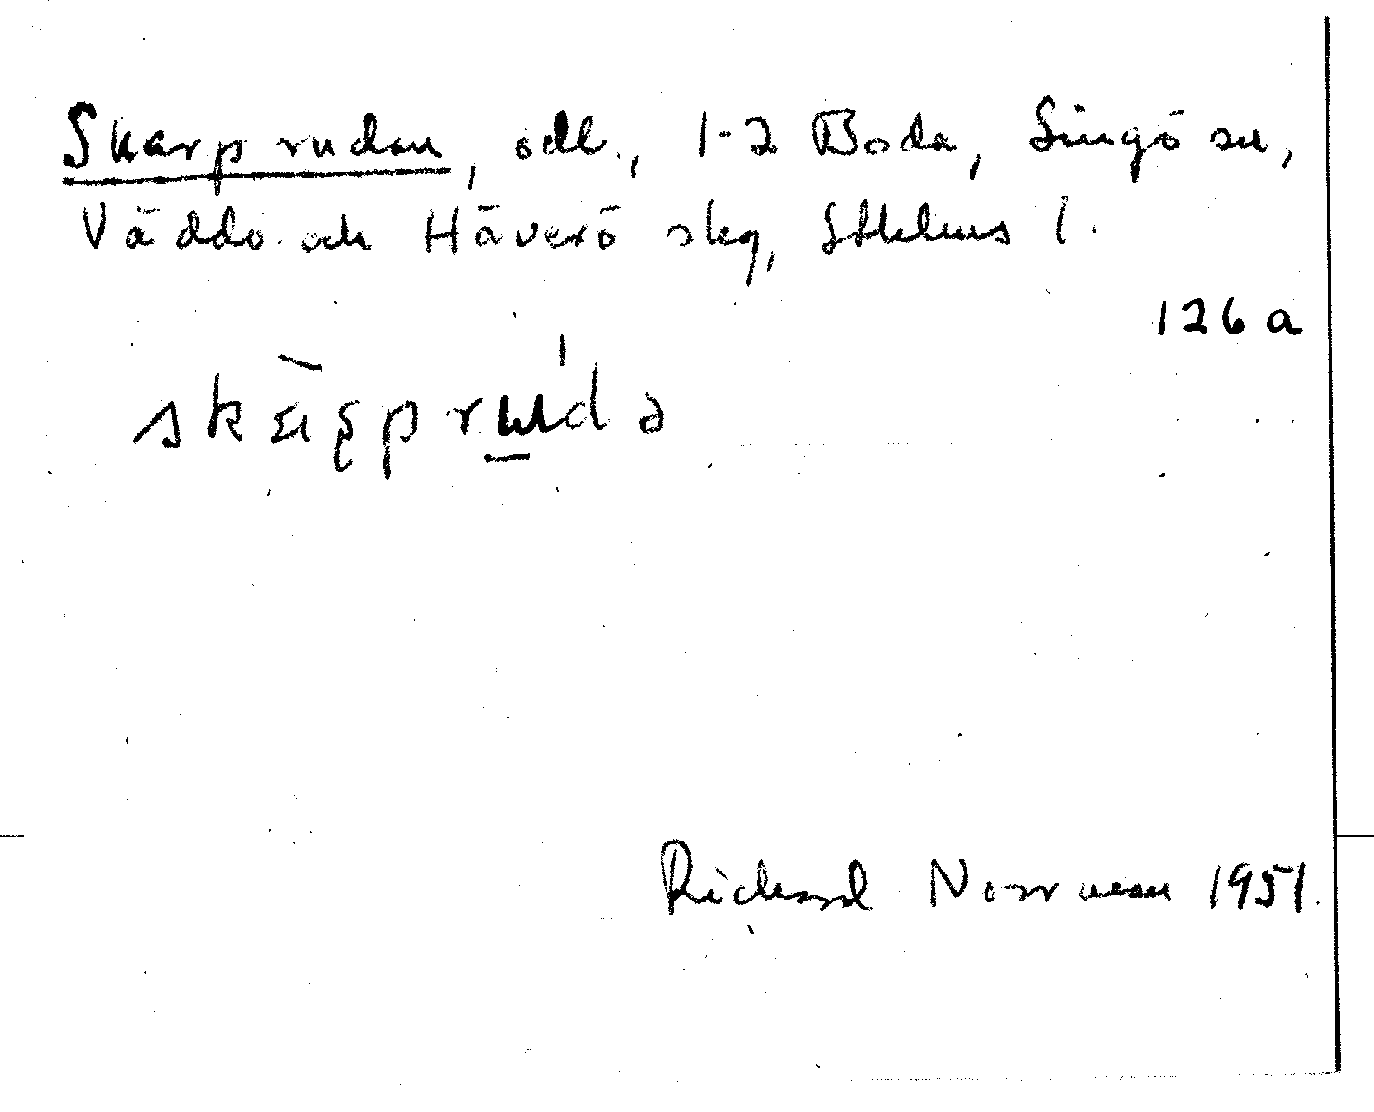 Skarprudan, odl., 1-2 Boda, Singö sn,
Väddö och Häverö skg, Sthlms l.
126 a
Richard Norrman 1951.